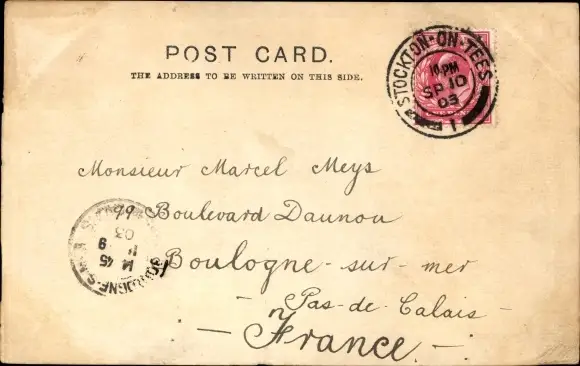 POST CARD.
THE ADDRESS TO BE WRITTEN ON THIS SIDE.
STOCKTON-ON-TEES
10.PM
SP 10
03
1
Monsieur Marcel Meys
99 Boulevard Daunou
Boulogne-sur-mer
- Pas-de-Calais -
- France -
BOULOGNE-S-MER
14 45
9
03